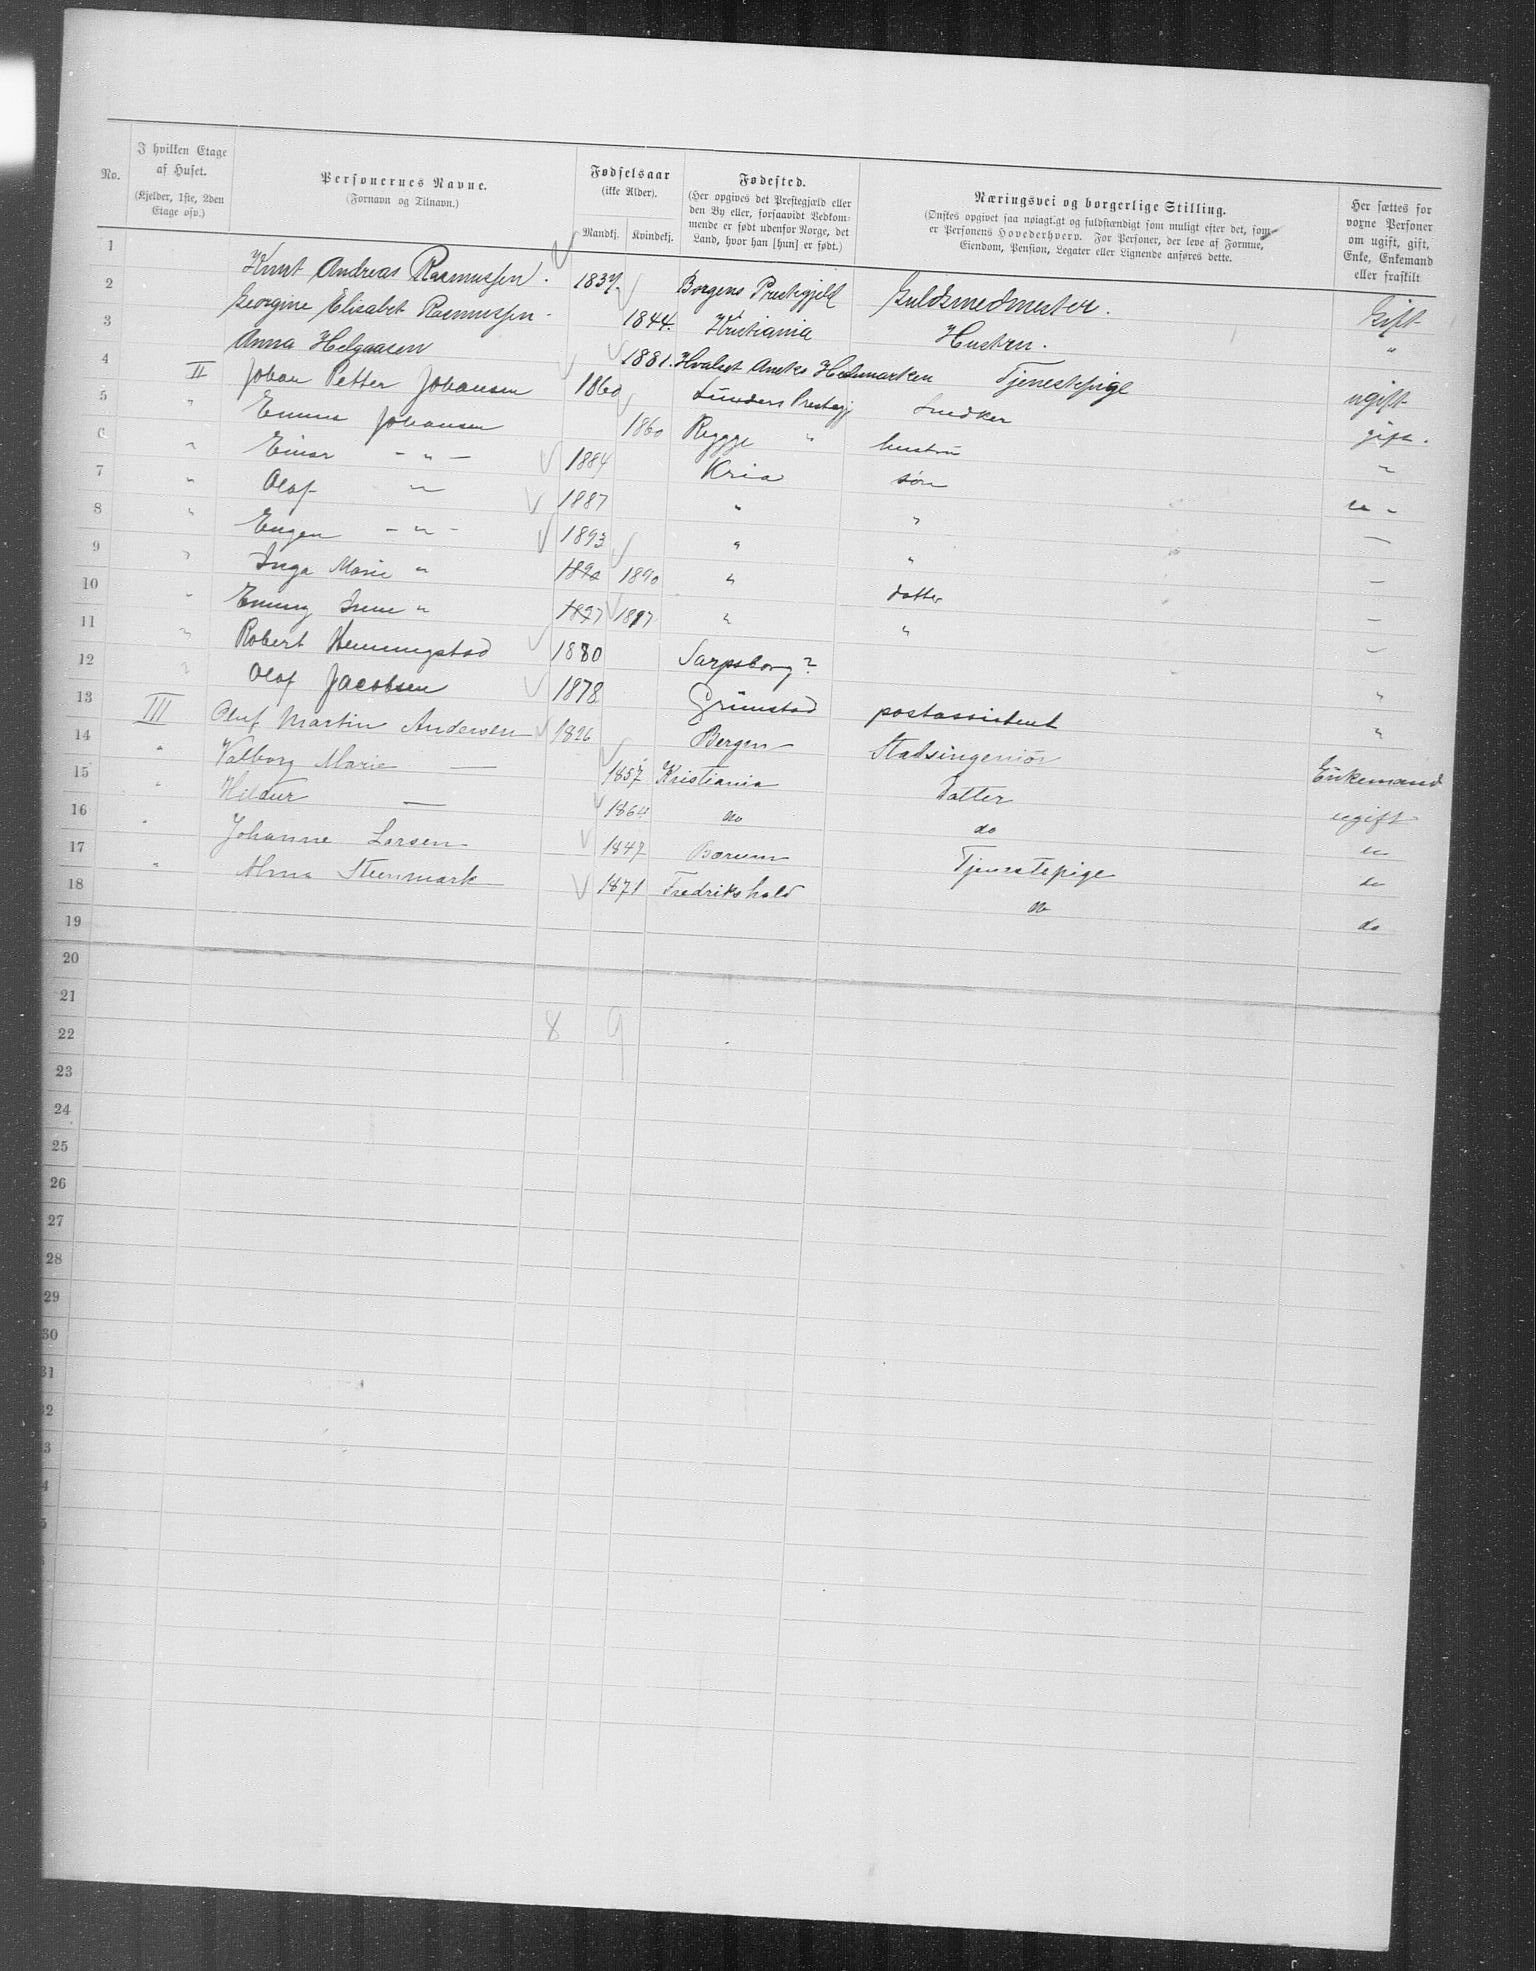 No. | I hvilken Etage af Huset. (Kjelder, 1ste, 2den Etage osv.) | Personernes Navne. (Fornavn og Tilnavn.) | Fødselsaar (ikke Alder). Mandkj. | Kvindekj. | Fødested. (Her opgives det Prestegjæld eller den By eller, forsaavidt Vedkommende er født udenfor Norge, det Land, hvor han [hun] er født.) | Næringsvei og borgerlige Stilling. (Ønskes opgivet saa nøiagtigt og fuldstændigt som muligt efter det, som er Personens Hovederhverv. For Personer, der leve af Formue, Eiendom, Pension, Legater eller Lignende anføres dette. | Her sættes for voxne Personer om ugift, gift, Enke, Enkemand eller fraskilt
1 Knut Andreas Rasmussen. 1837. Borgens Prestegjeld Guldsmedmester. Gift
2 Georgine Elisabet Rasmussen. 1844. Kristiania Hustru. "
3 Anna Helgaasen 1881. Hedemarken Tjenestepige ugift
4 II Johan Petter Johansen 1860 Prestegj Snedker gift.
5 " Emma Johansen 1860 Rygge " hustru "
6 " Einar - " - 1884 Kria søn
7 " Olaf " 1887 " " —
8 " Eugen - " - 1893 " " —
9 " Inga Marie " 1890 1890 " datter —
10 " Emmy " 1897 1897 " "
11 " Robert Hemmingstad 1880 Sarpsborg? "
12 " Olaf Jacobsen 1878 Grimstad postassistent "
13 III Oluf Martin Andersen 1826 Bergen Stadsingeniør Enkemand
14 " Valborg Marie — 1857 Kristiania Datter ugift
15 " Hildur — 1864 do do
16 " Johanne Larsen 1847 Bærum Tjenestepige do
17 " Alma Steenmark 1871 Fredrikshald do do
18
19
20
21
22 8 9
23
24
25
26
27
28
29
30
31
32